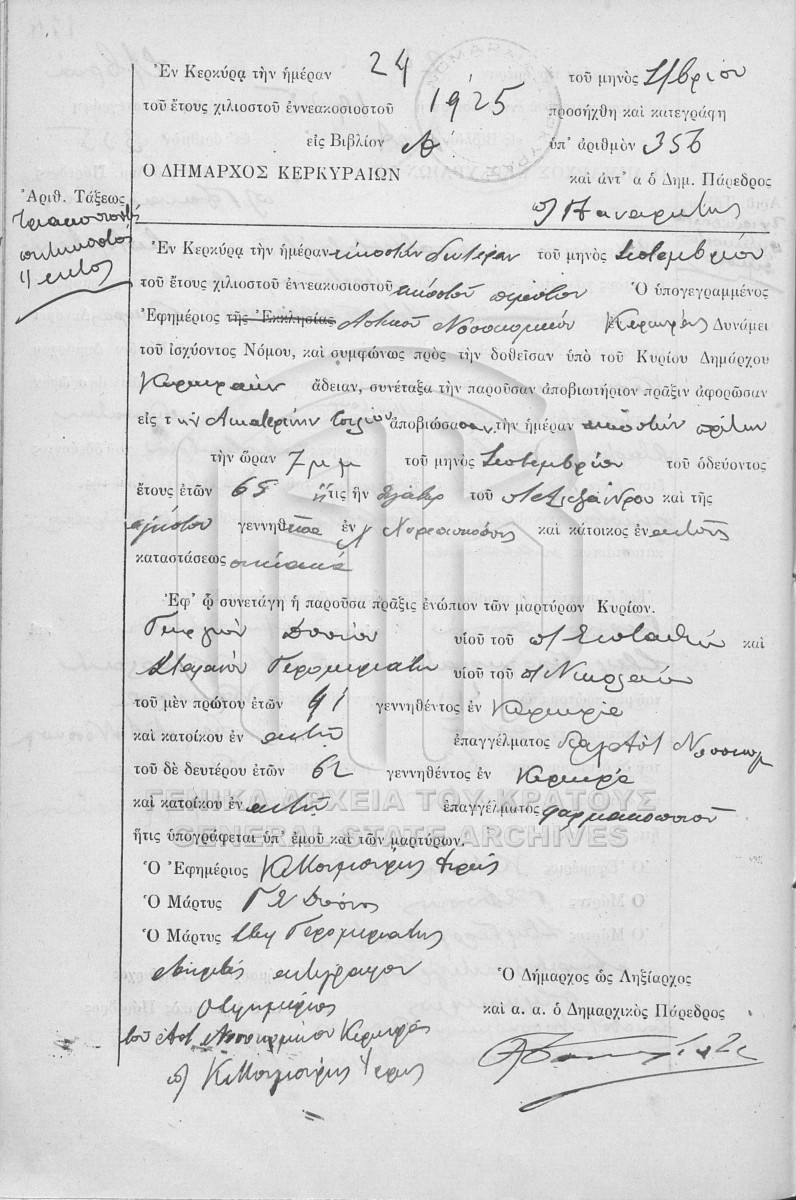 Ἐν Κερκύρᾳ τὴν ἡμέραν 24 τοῦ μηνὸς 7/βρίου
τοῦ ἔτους χιλιοστοῦ ἐννεακοσιοστοῦ 1925 προσήχθη καὶ κατεγράφη
εἰς Βιβλίον Α΄ ὑπ' ἀριθμὸν 356
Ο ΔΗΜΑΡΧΟΣ ΚΕΡΚΥΡΑΙΩΝ καὶ ἀντ' α ὁ Δημ. Πάρεδρος
Ἀριθ. Τάξεως
τριακοσιοστός
πεντηκοστός
ἕκτος
Ἐν Κερκύρᾳ τὴν ἡμέραν εἰκοστὴν δευτέραν τοῦ μηνὸς Σεπτεμβρίου
τοῦ ἔτους χιλιοστοῦ ἐννεακοσιοστοῦ εἰκοστοῦ πέμπτου Ὁ ὑπογεγραμμένος
Ἐφημέριος τῆς Ἐκκλησίας Αστικοῦ Νοσοκομείου Κερκύρας Δυνάμει
τοῦ ἰσχύοντος Νόμου, καὶ συμφώνως πρὸς τὴν δοθεῖσαν ὑπὸ τοῦ Κυρίου Δημάρχου
Κερκυραίων ἄδειαν, συνέταξα τὴν παροῦσαν ἀποβιωτήριον πρᾶξιν ἀφορῶσαν
εἰς τ ὴν Αικατερίνην ἀποβιώσασαν τὴν ἡμέραν εἰκοστὴν πρώτην
τὴν ὥραν 7 μ μ τοῦ μηνὸς Σεπτεμβρίου τοῦ ὁδεύοντος
ἔτους ἐτῶν 65 ἥτις ἦν θυγάτηρ τοῦ π Αλεξάνδρου καὶ τῆς
ἀγνώστου γεννηθεῖσα ἐν καὶ κάτοικος ἐν αὐτῆς
καταστάσεως οἰκιακά
Ἐφ' ᾧ συνετάγη ἡ παροῦσα πρᾶξις ἐνώπιον τῶν μαρτύρων Κυρίων.
Γεωργίου υἱοῦ τοῦ π Ευσταθίου καὶ
Στυλιανοῦ Γερομεριάτη υἱοῦ τοῦ π Νικολάου
τοῦ μὲν πρώτου ἐτῶν 41 γεννηθέντος ἐν Κερκύρᾳ
καὶ κατοίκου ἐν αὐτῇ ἐπαγγέλματος Νοσοκομ
τοῦ δὲ δευτέρου ἐτῶν 62 γεννηθέντος ἐν Κερκύρᾳ
καὶ κατοίκου ἐν αὐτῇ ἐπαγγέλματος φαρμακοποιοῦ
ΓΕΝΙΚΑ ΑΡΧΕΙΑ ΤΟΥ ΚΡΑΤΟΥΣ
GENERAL STATE ARCHIVES
ἥτις ὑπογράφεται ὑπ' ἐμοῦ καὶ τῶν μαρτύρων.
Ὁ Ἐφημέριος Ἱερεύς
Ὁ Μάρτυς
Ὁ Μάρτυς Στυ Γερομεριάτης
Ἀκριβὲς ἀντίγραφον
Ο Ἐφημέριος
τοῦ Αστ Νοσοκομείου Κερκύρας
Ἱερεύς
Ὁ Δήμαρχος ὡς Ληξίαρχος
καὶ α. α. ὁ Δημαρχικὸς Πάρεδρος